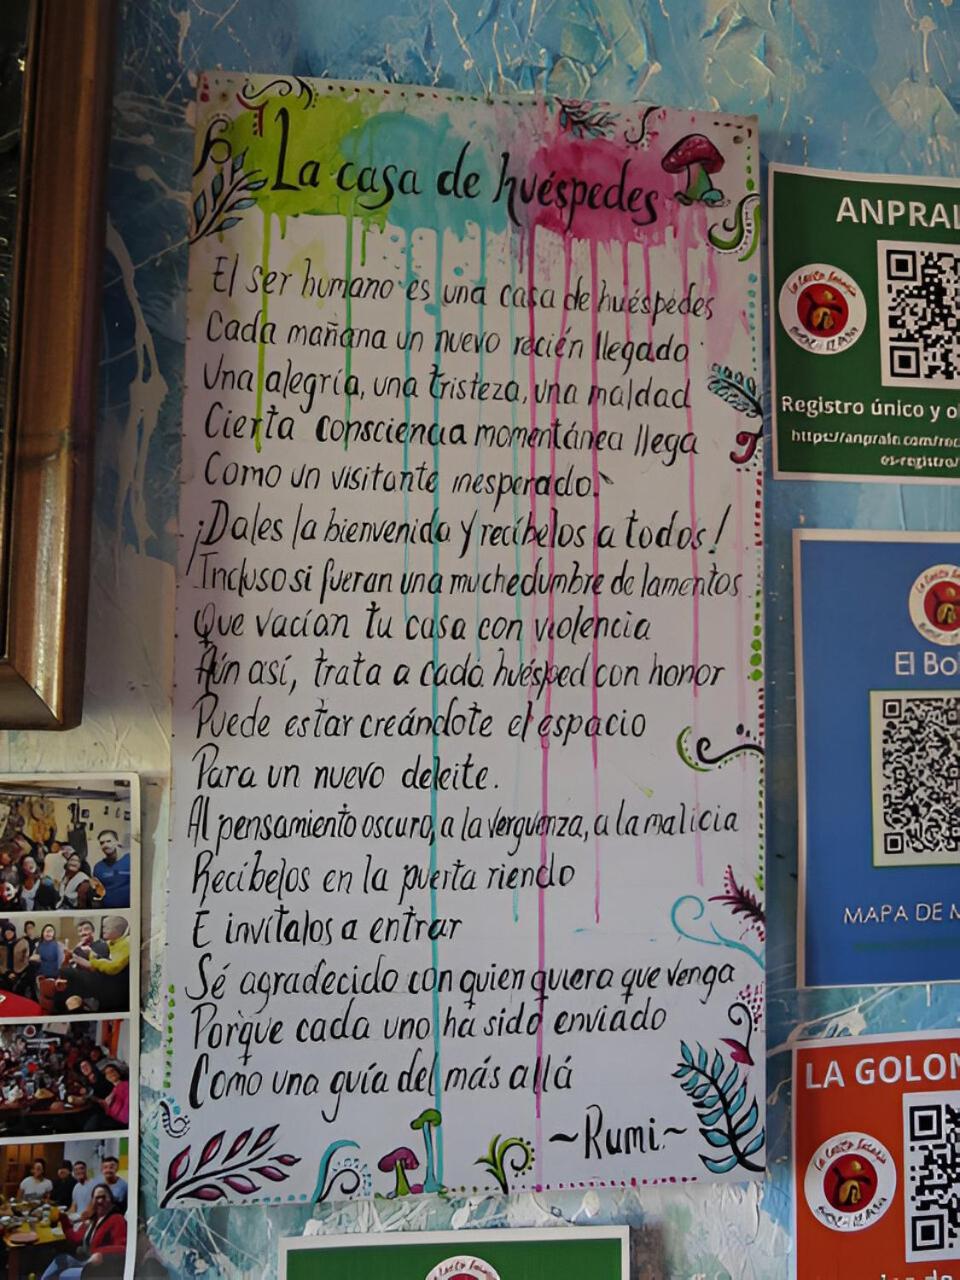 La casa de huéspedes
El ser humano es una casa de huéspedes
Cada mañana un nuevo recién llegado
Una alegría, una tristeza, una maldad
Cierta consciencia momentánea llega
Como un visitante inesperado.
¡Dales la bienvenida y recíbelos a todos!
Incluso si fueran una muchedumbre de lamentos
Que vacían tu casa con violencia
Aún así, trata a cada huésped con honor
Puede estar creándote el espacio
Para un nuevo deleite.
Al pensamiento oscuro, a la verguenza, a la malicia
Recíbelos en la puerta riendo
E invítalos a entrar
Sé agradecido con quien quiera que venga
Porque cada uno ha sido enviado
Como una guía del más allá
~Rumi.~
ANPRAL
Registro único y
El Bo
MAPA DE M
LA GOLON